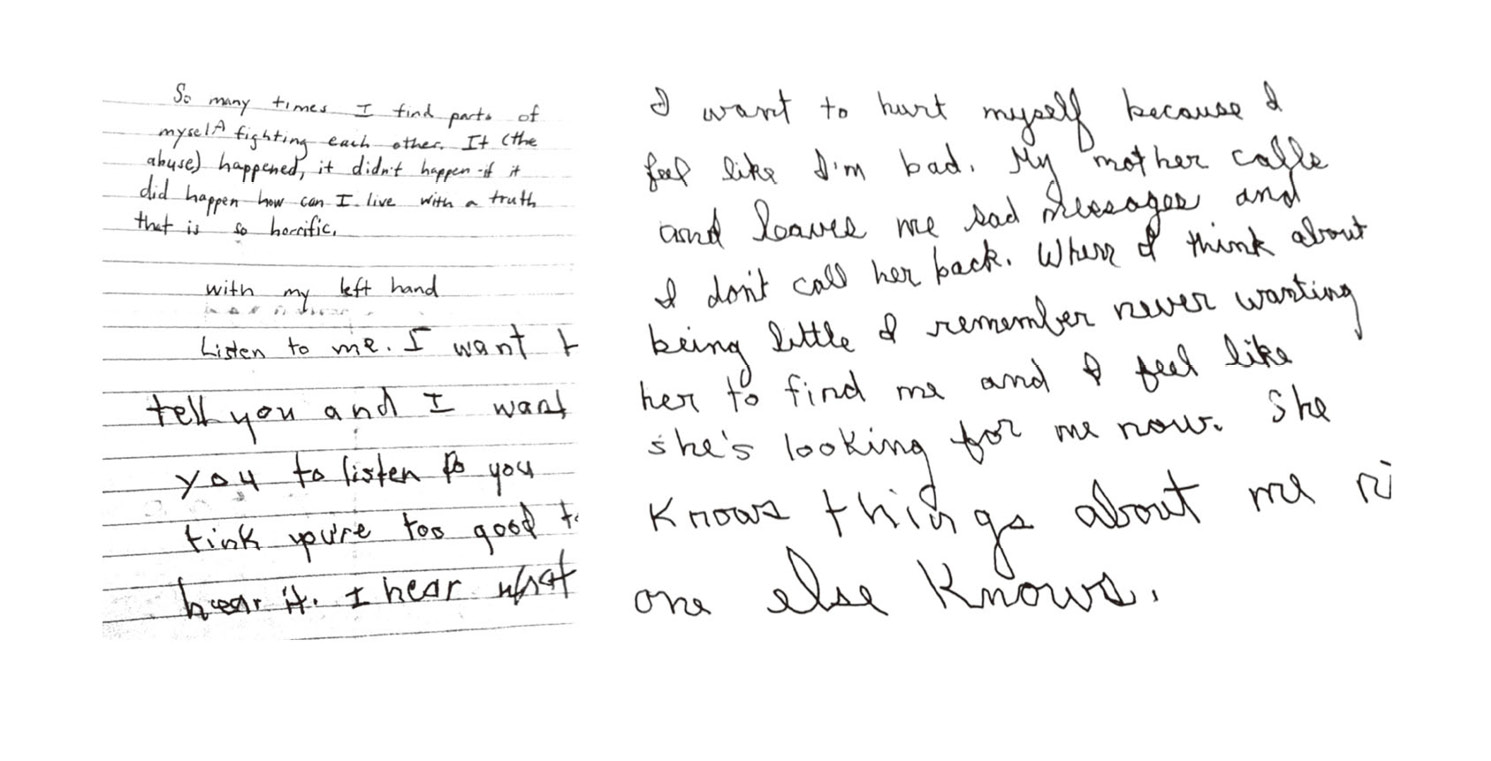 So many times I find parts of
myself fighting each other. It (the
abuse) happened, it didn't happen - if it
did happen how can I live with a truth
that is so horrific.
with my left hand
Listen to me. I want t
tell you and I want
you to listen to you
tink you're too good to
hear it. I hear what
I want to hurt myself because I
feel like I'm bad. My mother calls
and leaves me sad messages and
I don't call her back. When I think about
being little I remember never wanting
her to find me and I feel like
she's looking for me now. She
knows things about me
one else knows.